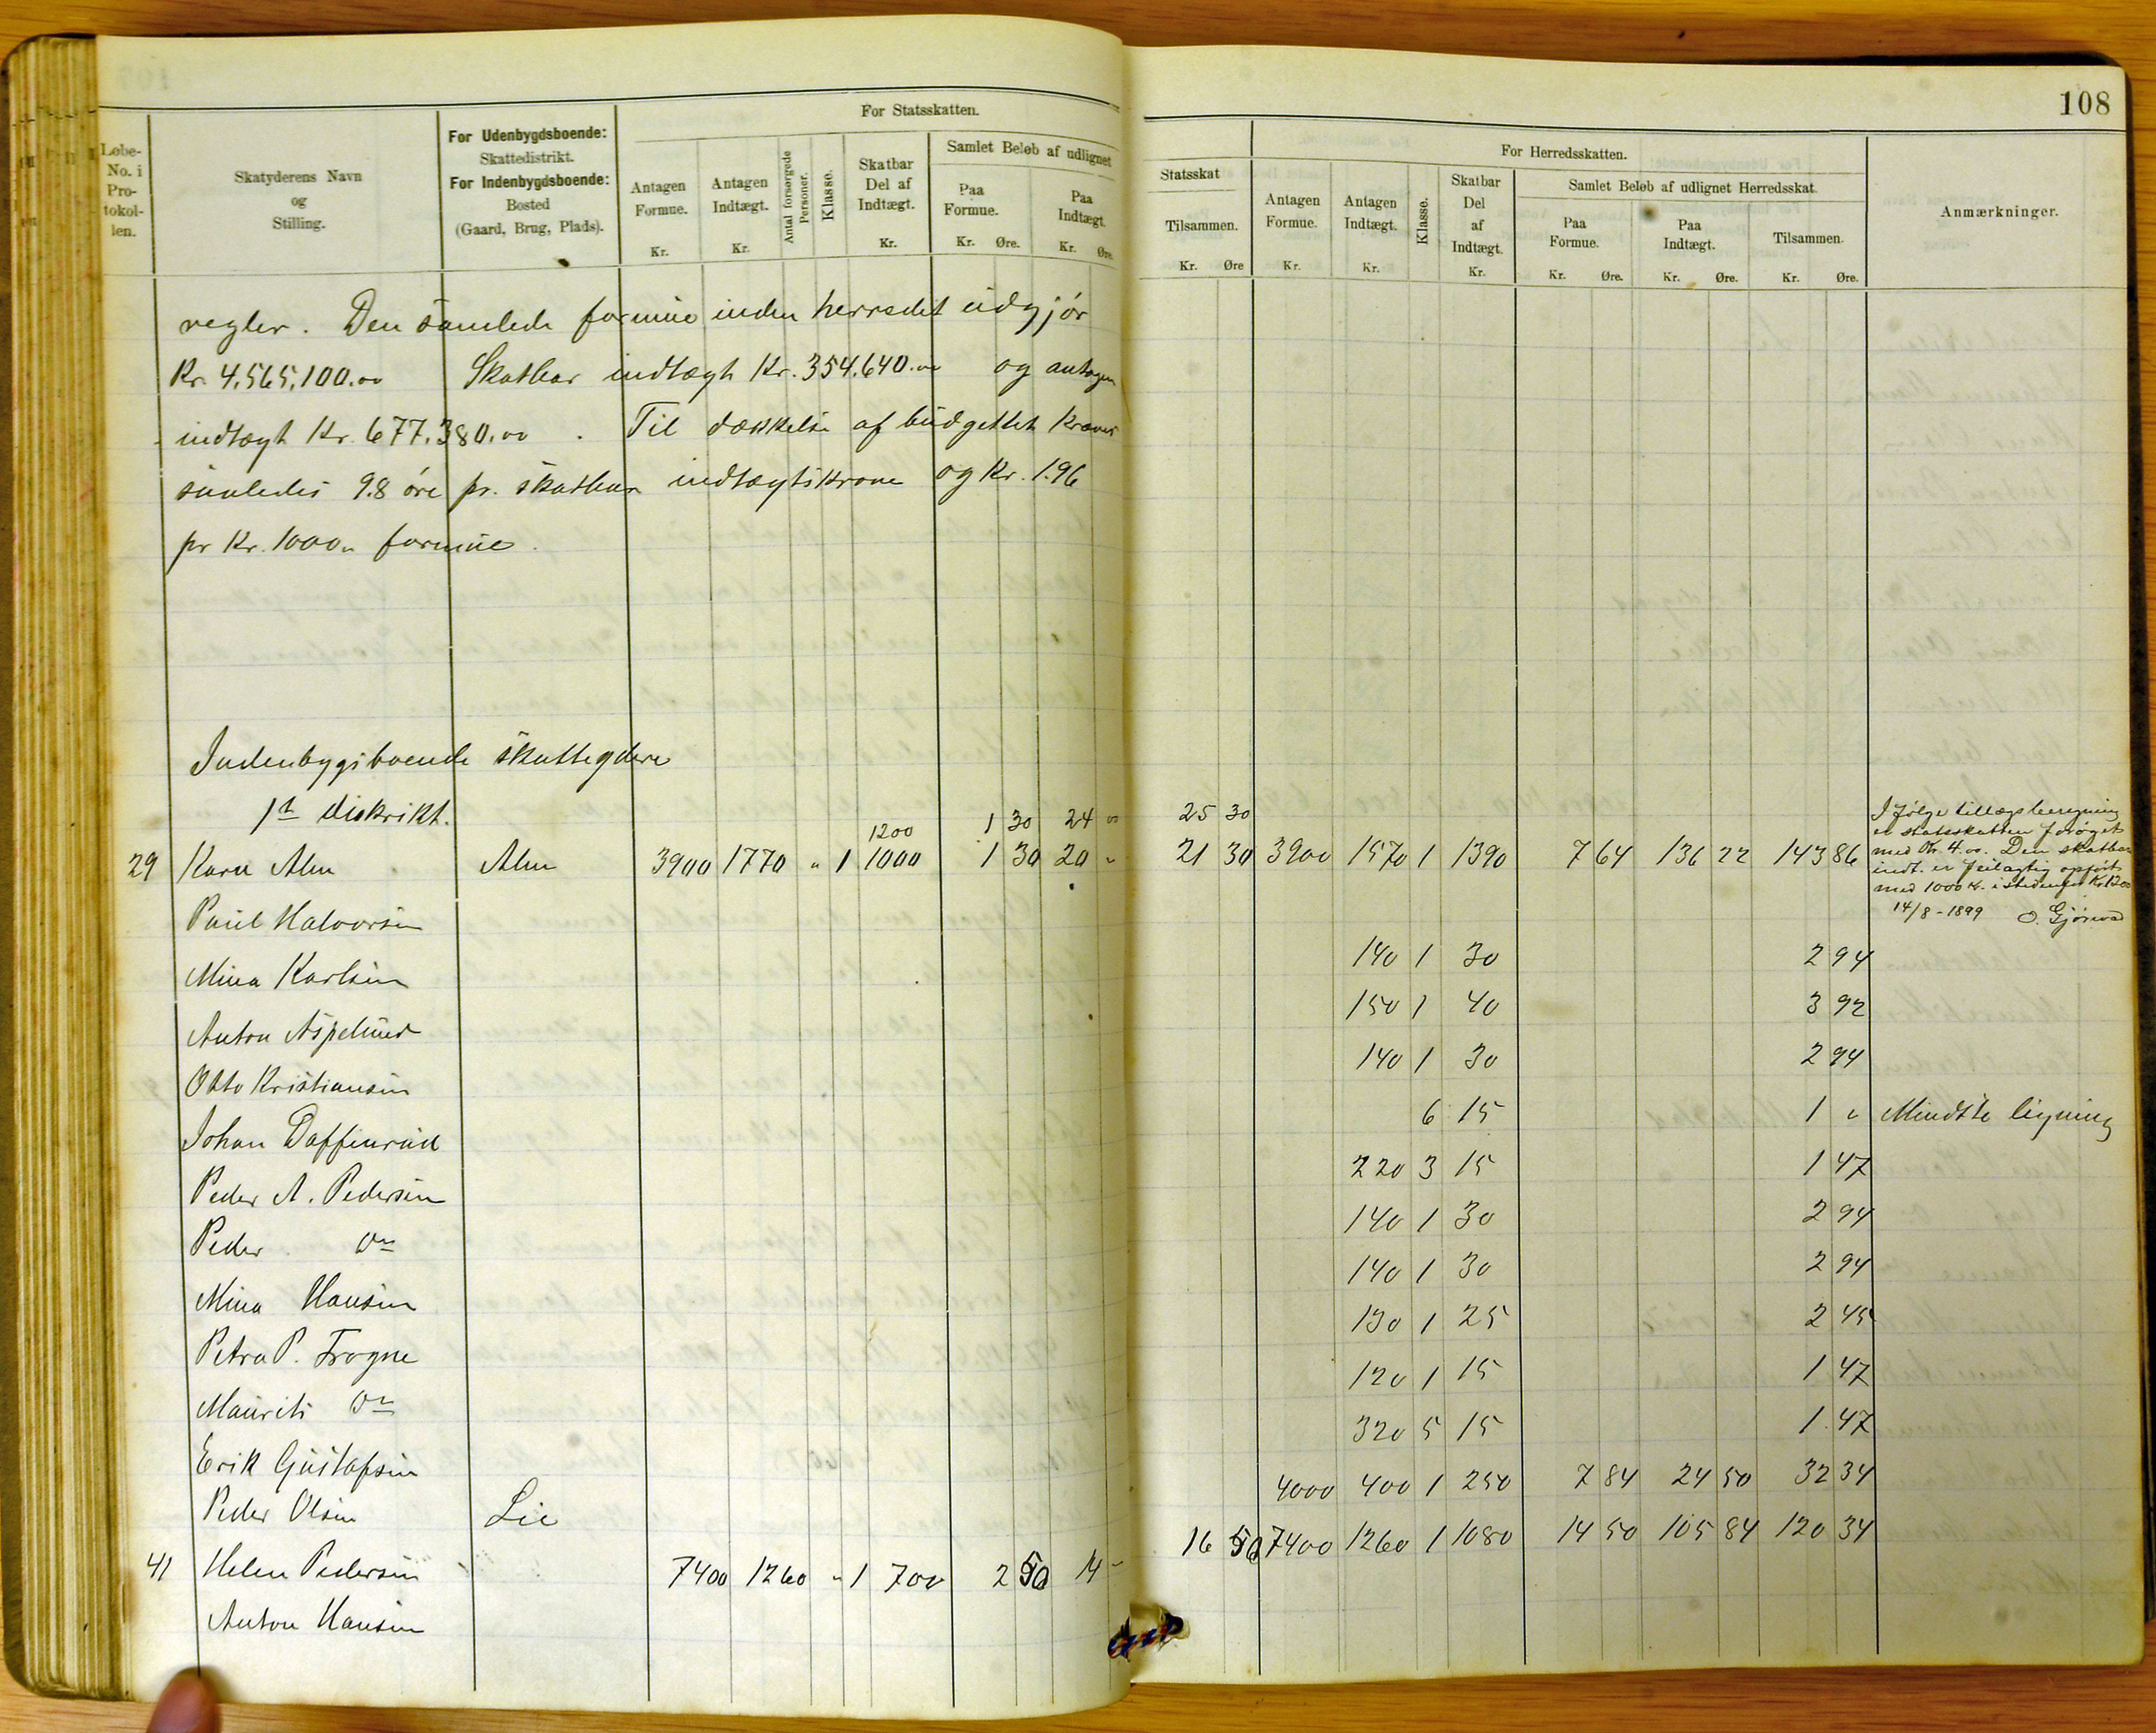 108
For Statsskatten.
Løbe-No. i Protokollen.
Skatyderens Navn og Stilling.
For Udenbygdsboende: Skattedistrikt. For Indenbygdsboende: Bosted (Gaard, Brug, Plads).
Antagen Formue. Kr.
Antagen Indtægt. Kr.
Antal forsørgede Personer.
Klasse.
Skatbar Del af Indtægt. Kr.
Samlet Beløb af udlignet
Paa Formue. Kr. Øre.
Paa Indtægt. Kr. Øre.
Statsskat
Tilsammen. Kr. Øre
For Herredsskatten.
Antagen Formue. Kr.
Antagen Indtægt. Kr.
Klasse.
Skatbar Del af Indtægt. Kr.
Samlet Beløb af udlignet Herredsskat.
Paa Formue. Kr. Øre.
Paa Indtægt. Kr. Øre.
Tilsammen. Kr. Øre.
Anmærkninger.
regler. Den samlede formue inden herredet udgjør
Kr. 4,565,100.00 Skatbar indtægt Kr. 354.640.00 og antagen
indtægt Kr. 677.380.00. Til dækkelse af budgettet kræves
saaledes 9.8 øre pr. skatbar indtægtskrone og Kr. 1.96
pr Kr. 1000.. formue.
Indenbygsboende skatteydere
1st distrikt.
1200 1 30 24 00 25 30
29 Karn Alm Alm 3900 1770 " 1 1000 1 30 20 " 21 30 3900 1570 1 1390 7 64 136 22 143 86
I følge tillægsberegning
er statsskatten forøget
med Kr. 4.00. Den skatbar
indt. er feilagtig opført
med 1000 Kr. istedenfor Kr 1200
14/8-1899 O. Gjør
Paul Halvorsen 140 1 30 2 94
Mina Karlsen 150 1 40 3 92
Anton Aspelund 140 1 30 2 94
Otto Kristiansen 6 15 1 " Mindste ligning
Johan Daffinrud 220 3 15 1 47
Peder A. Pedersen 140 1 30 2 94
Peder Do 140 1 30 2 94
Mina Hansen 130 1 25 2 45
Petra P. Frogne 120 1 15 1 47
Maurits Do 320 5 15 1 47
Erik Gustafsen 4000 400 1 250 7 84 24 50 32 34
Peder Olsen Lie
41 Helen Pedersen 7400 1260 " 1 700 2 50 14 - 16 50 7400 1260 1 1080 14 50 105 84 120 34
Anton Hansen